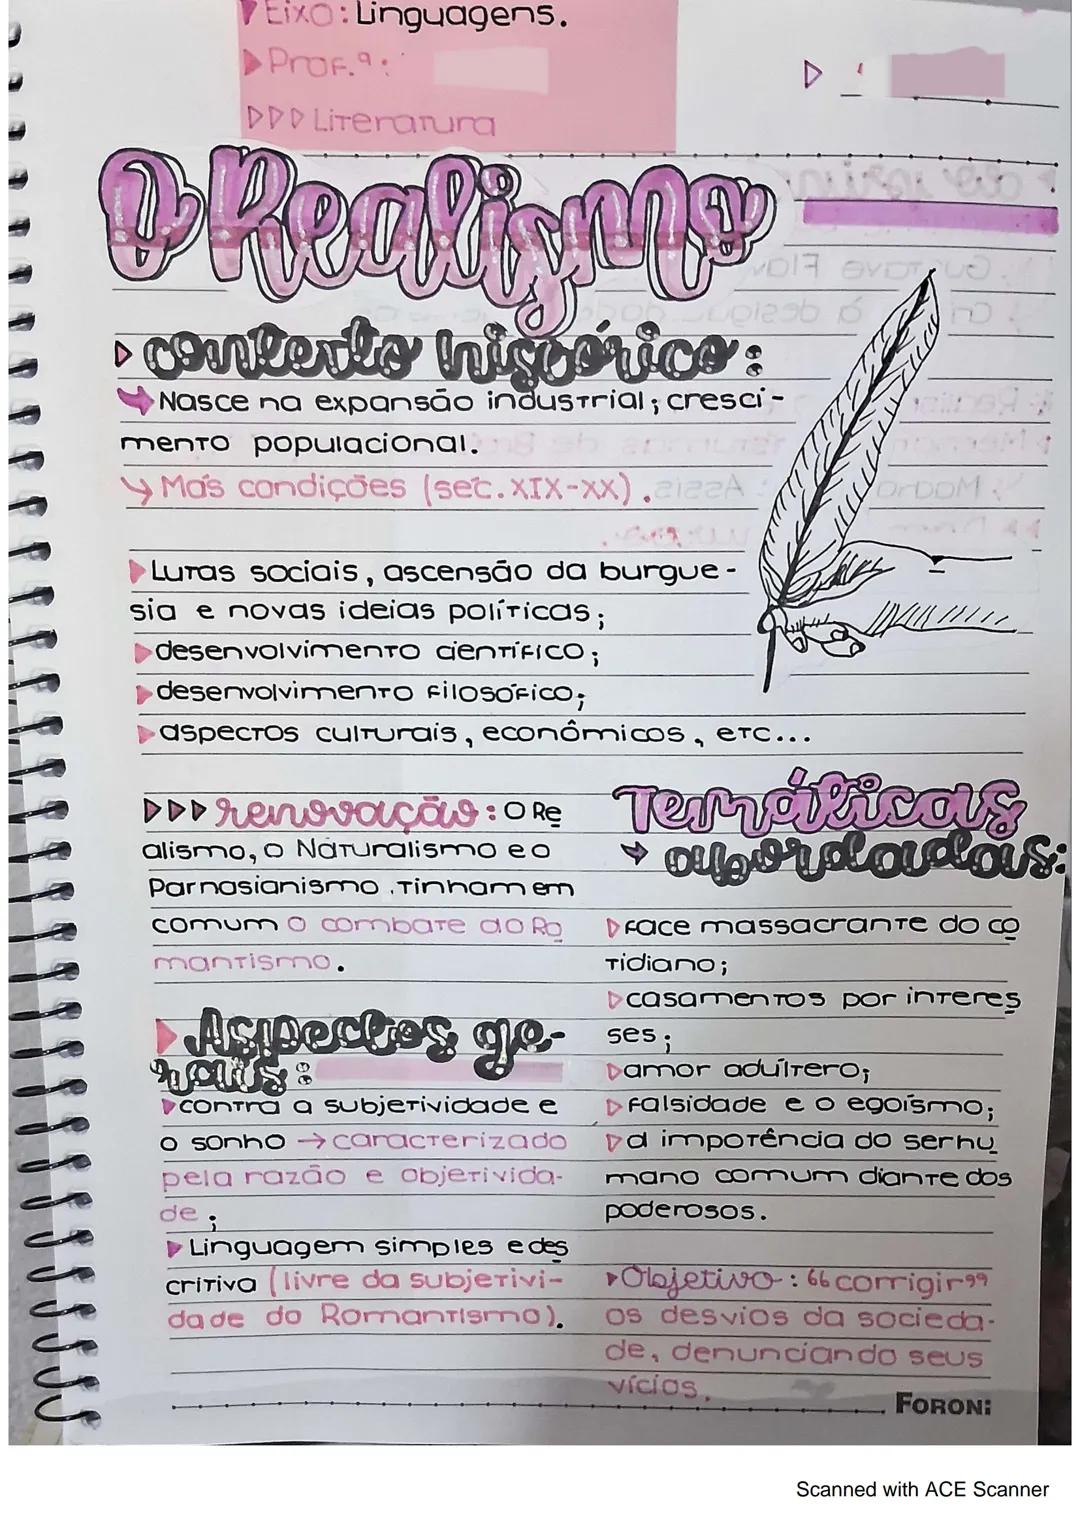 Eixo: Linguagens.
Prof.ª:
Literatura
O Realismo
contexto histórico:
Nasce na expansão industrial; cresci-
mento populacional.
Más condições (séc. XIX-XX).
Lutas sociais, ascensão da burgue-
sia e novas ideias políticas;
desenvolvimento científico;
desenvolvimento filosófico;
aspectos culturais, econômicos, etc...
renovação: O Re
alismo, o Naturalismo e o
Parnasianismo, Tinham em
comum o combate ao Ro
mantismo.
Aspectos ge-
rais:
contra a subjetividade e
o sonho → caracterizado
pela razão e objetivida-
de;
Linguagem simples e des
critiva (livre da subjetivi-
dade do Romantismo).
Temáticas
abordadas:
face massacrante do co
tidiano;
casamentos por interes
ses;
amor adúltero;
falsidade e o egoísmo;
a impotência do ser hu
mano comum diante dos
poderosos.
Objetivo: "corrigir"
os desvios da socieda-
de, denunciando seus
vícios.
FORONI
Scanned with ACE Scanner